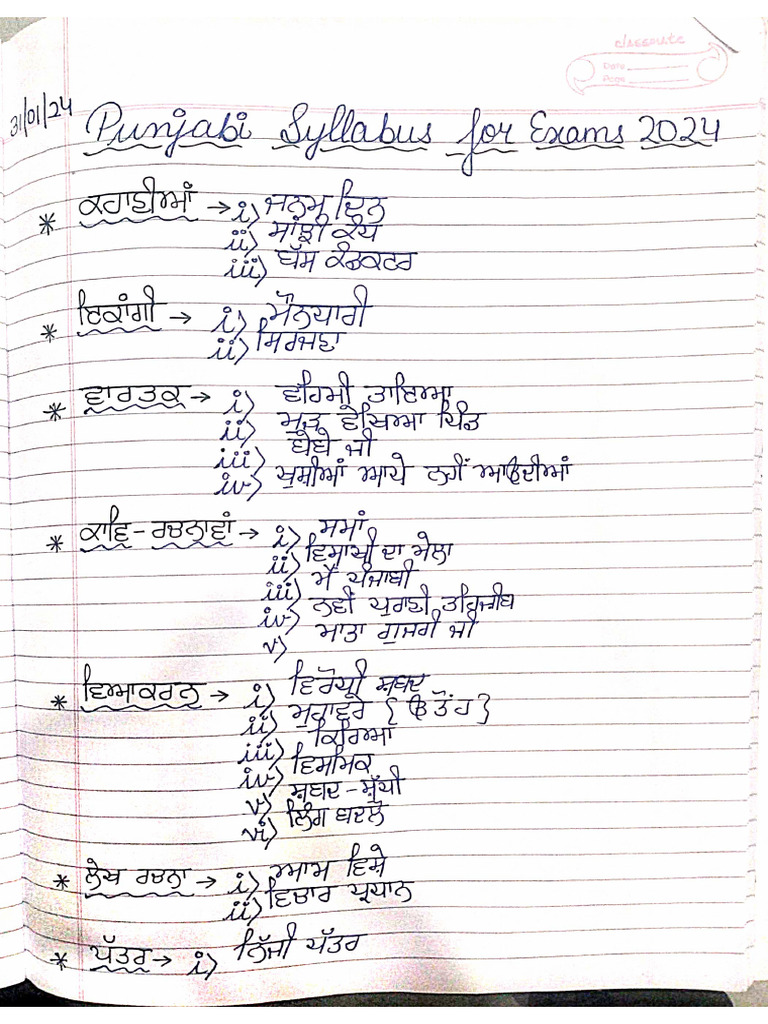 classmate
Date
Page
31/01/24
Punjabi Syllabus for Exams 2024
* ਕਹਾਣੀਆਂ → i) ਜਨਮ ਦਿਨ
ii) ਸਾਂਝੀ ਕੰਧ
iii) ਬੱਸ ਕੰਡਕਟਰ
* ਇਕਾਂਗੀ → i) ਮੌਨਧਾਰੀ
ii) ਸਿਰਜਣਾ
* ਵਾਰਤਕ → i) ਵਹਿਮੀ ਤਾਇਆ
ii) ਮੁੜ ਵੇਖਿਆ ਪਿੰਡ
iii) ਬੇਬੇ ਜੀ
iv) ਖੁਸ਼ੀਆਂ ਆਪੇ ਨਹੀਂ ਆਉਂਦੀਆਂ
* ਕਾਵਿ-ਰਚਨਾਵਾਂ → i) ਸਮਾਂ
ii) ਵਿਸਾਖੀ ਦਾ ਮੇਲਾ
iii) ਮੈਂ ਪੰਜਾਬੀ
iv) ਨਵੀਂ ਪੁਰਾਣੀ ਤਹਿਜ਼ੀਬ
v) ਮਾਤਾ ਗੁਜਰੀ ਜੀ
* ਵਿਆਕਰਨ → i) ਵਿਰੋਧੀ ਸ਼ਬਦ
ii) ਮੁਹਾਵਰੇ { ੳ ਤੋਂ ਹ }
iii) ਕਿਰਿਆ
iv) ਵਿਸਮਿਕ
v) ਸ਼ਬਦ-ਸ਼ੁੱਧੀ
vi) ਲਿੰਗ ਬਦਲੋ
* ਲੇਖ ਰਚਨਾ → i) ਆਮ ਵਿਸ਼ੇ
ii) ਵਿਚਾਰ ਪ੍ਰਧਾਨ
* ਪੱਤਰ → i) ਨਿੱਜੀ ਪੱਤਰ